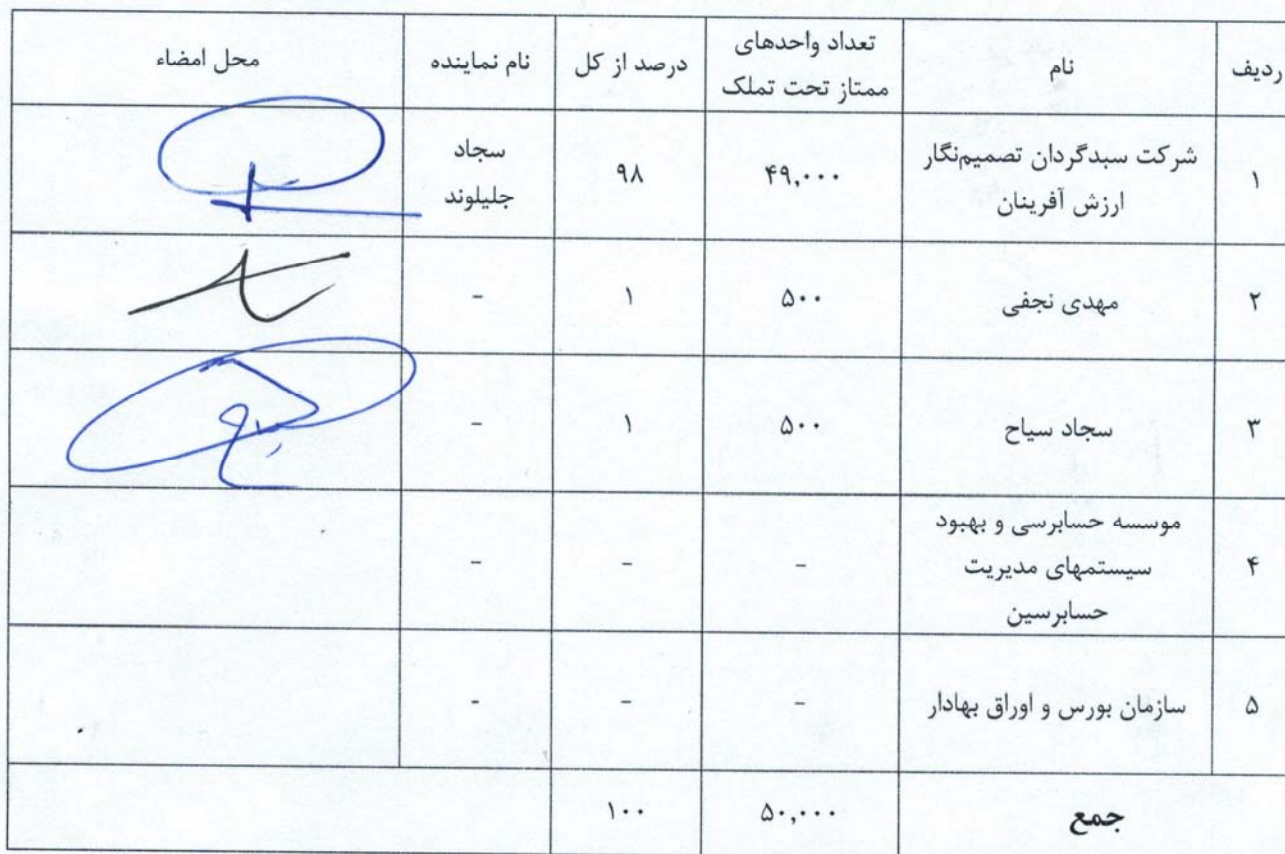 ردیف	نام	تعداد واحدهای ممتاز تحت تملک	درصد از کل	نام نماینده	محل امضاء
۱	شرکت سبدگردان تصمیم‌نگار ارزش آفرینان	۴۹,۰۰۰	۹۸	سجاد جلیلوند
۲	مهدی نجفی	۵۰۰	۱	-
۳	سجاد سیاح	۵۰۰	۱	-
۴	موسسه حسابرسی و بهبود سیستمهای مدیریت حسابرسین	-	-	-
۵	سازمان بورس و اوراق بهادار	-	-	-
جمع	۵۰,۰۰۰	۱۰۰